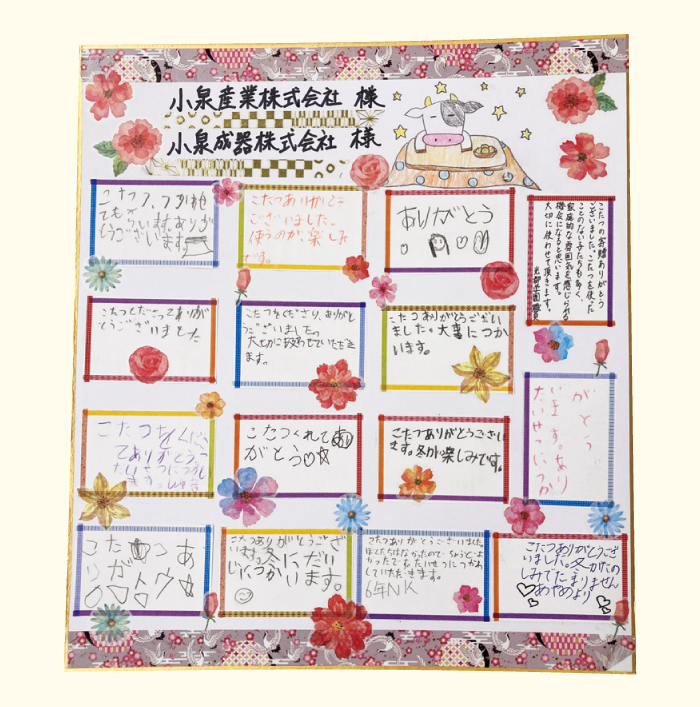 小泉産業株式会社 様
小泉成器株式会社 様
こたつ
ても
ありが
とうございます
こたつありがとう
ございました。
使うのが、楽しみ
です。
ありがとう
こたつの寄贈ありがとう
ございました。こたつを使った
ことのない子たちも多く、
家庭的な雰囲気を感じられる
機会になると思います。
大切に使わせて頂きます。
職員
こたつくださってありが
とうございました
こたつをくださり、ありがと
うございました。
大切に使わせていただき
ます。
こたつありがとうござい
ました。大事につか
います。
がとう
います。あり
たいせつにつか
こたつをくださっ
てありがとう
たいせつに
こたつくれてあり
がとう♡☆
こたつありがとうござい
ます。冬が楽しみです。
こたつ あ
りが
トウ
こたつありがとうござ
います。冬にだい
じにつかいます。
こたつありがとうございました。
ぼくたちはなかったので、ちょうどよ
かったです。たいせつにつかわ
していただきます。
6年NK
こたつありがとうござ
いました。冬がたの
しみでたまりません
あやめより